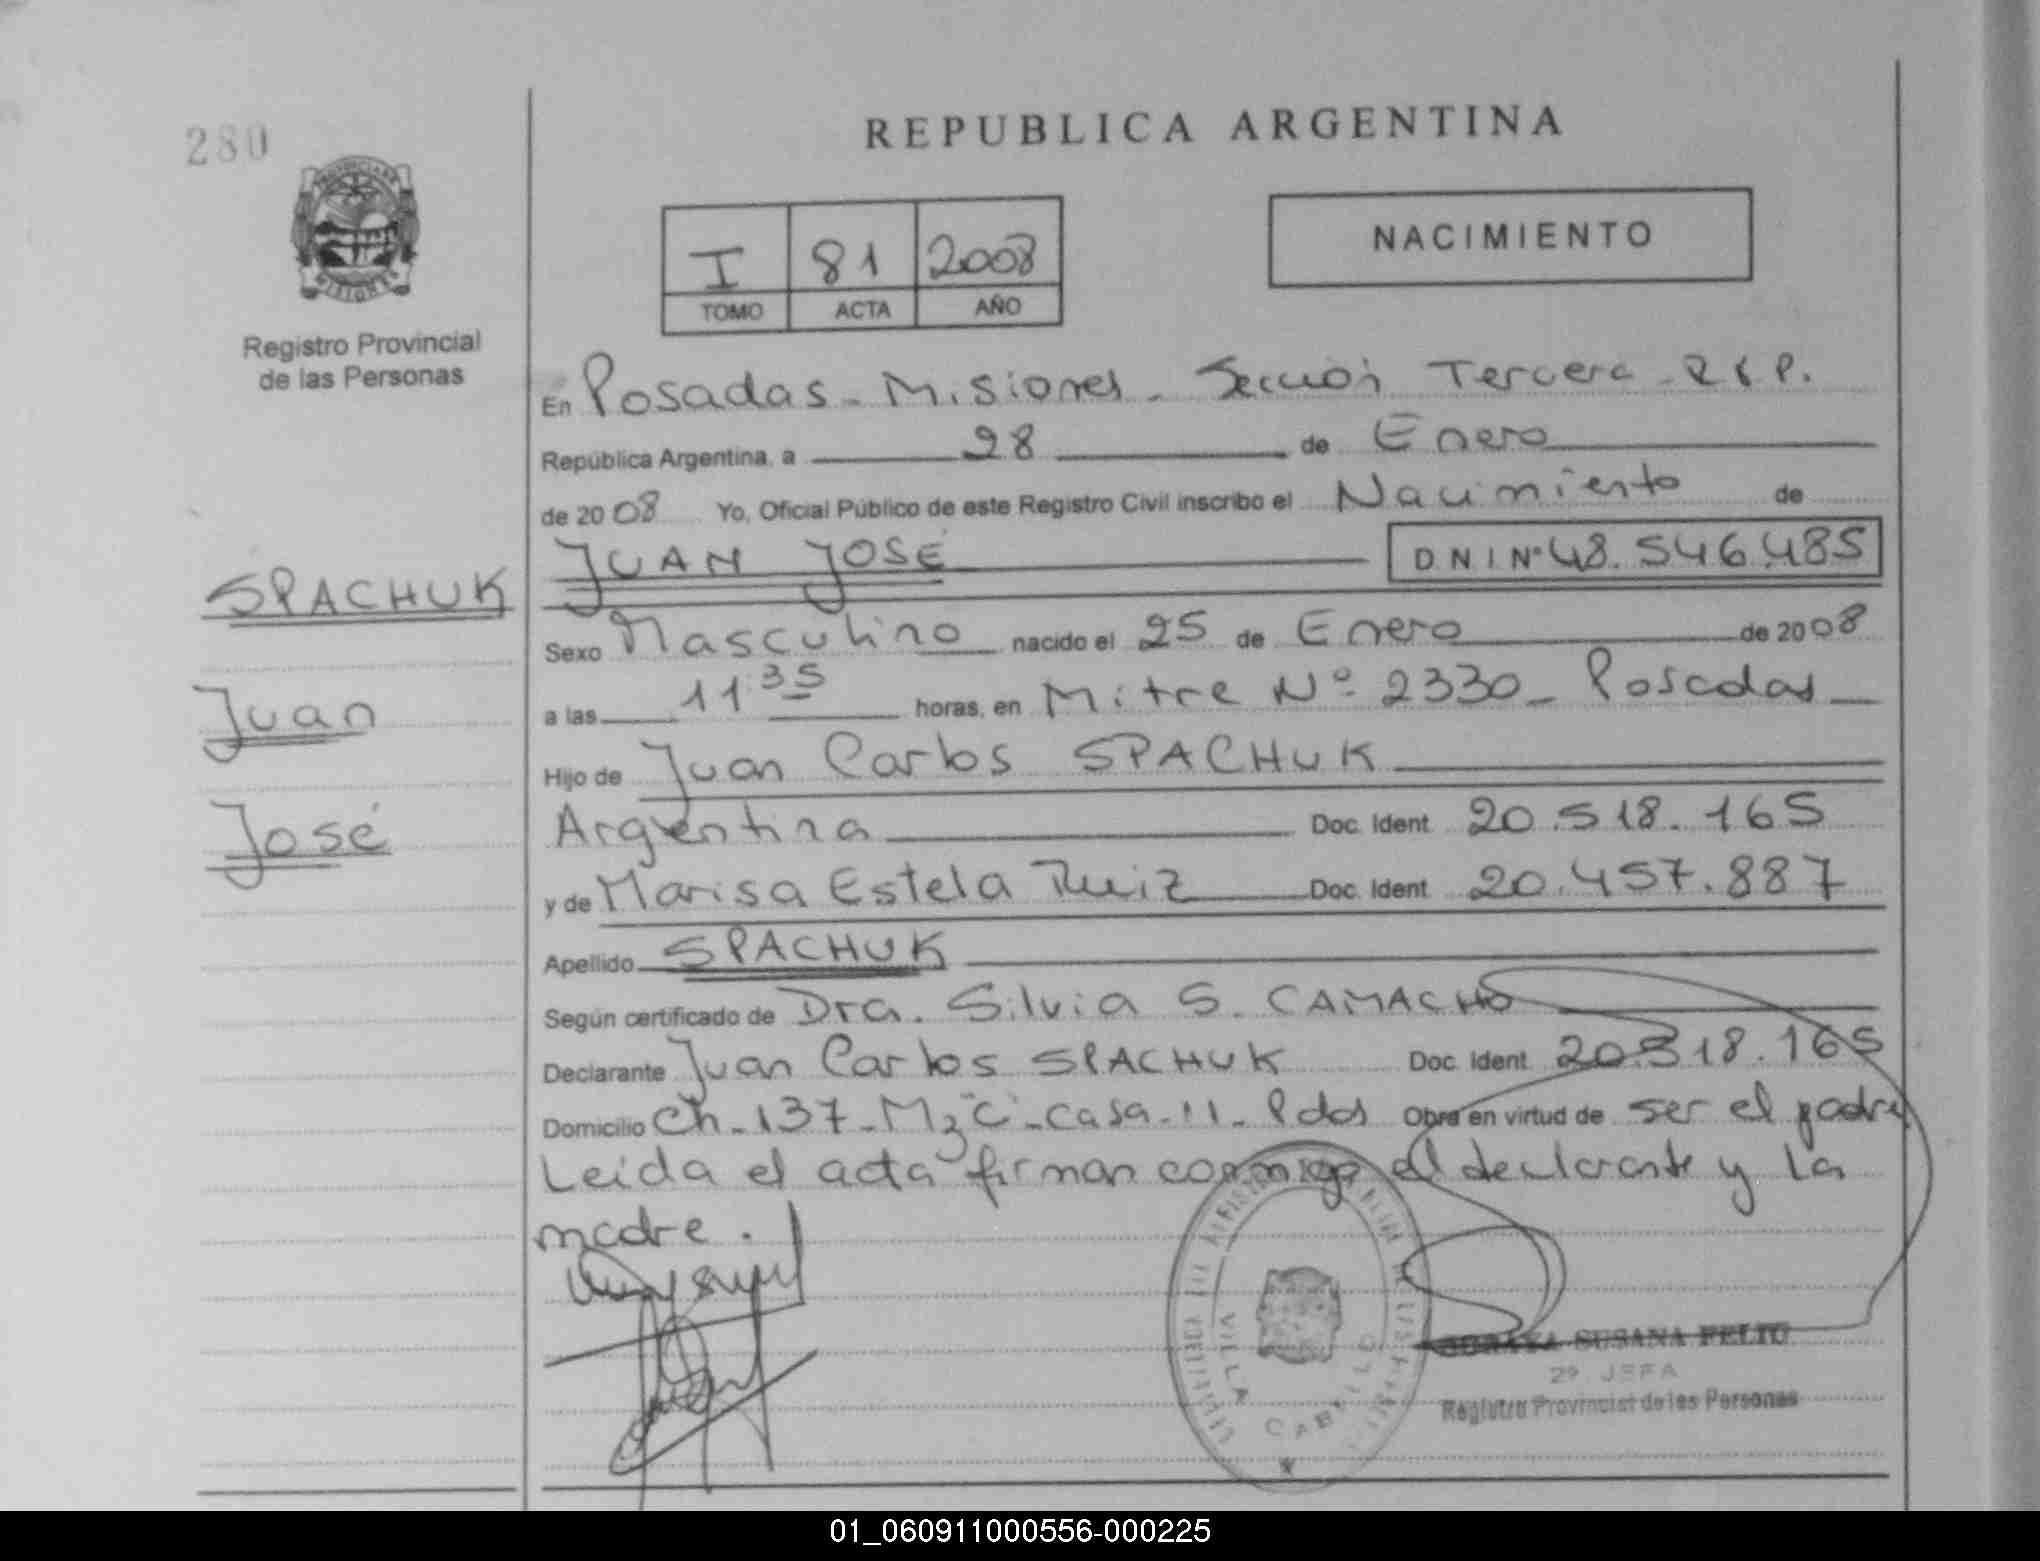 280
PROVINCIA DE
MISIONES
Registro Provincial
de las Personas
SPACHUK
Juan
José
REPUBLICA ARGENTINA
I 81 2008
TOMO ACTA AÑO
NACIMIENTO
En Posadas - Misiones - Sección Tercera - R.P.
República Argentina, a 28 de Enero
de 2008 Yo, Oficial Público de este Registro Civil inscribo el Nacimiento de
JUAN JOSÉ D N I Nº 48.546.485
Sexo Masculino nacido el 25 de Enero de 2008
a las 11:35 horas, en Mitre Nº 2330 - Posadas
Hijo de Juan Carlos SPACHUK
Argentina Doc. Ident 20.518.165
y de Marisa Estela Ruiz Doc. Ident 20.457.887
Apellido SPACHUK
Según certificado de Dra. Silvia S. CAMACHO
Declarante Juan Carlos SPACHUK Doc. Ident 20.518.165
Domicilio Ch - 137 - Mz "C" - casa - 11 - Pdas Obra en virtud de ser el padre
Leida el acta firman conmigo el declarante y la
madre.
VILLA CABELLO
SUSANA FELTU
2º JEFA
Registro Provincial de las Personas
01_060911000556-000225